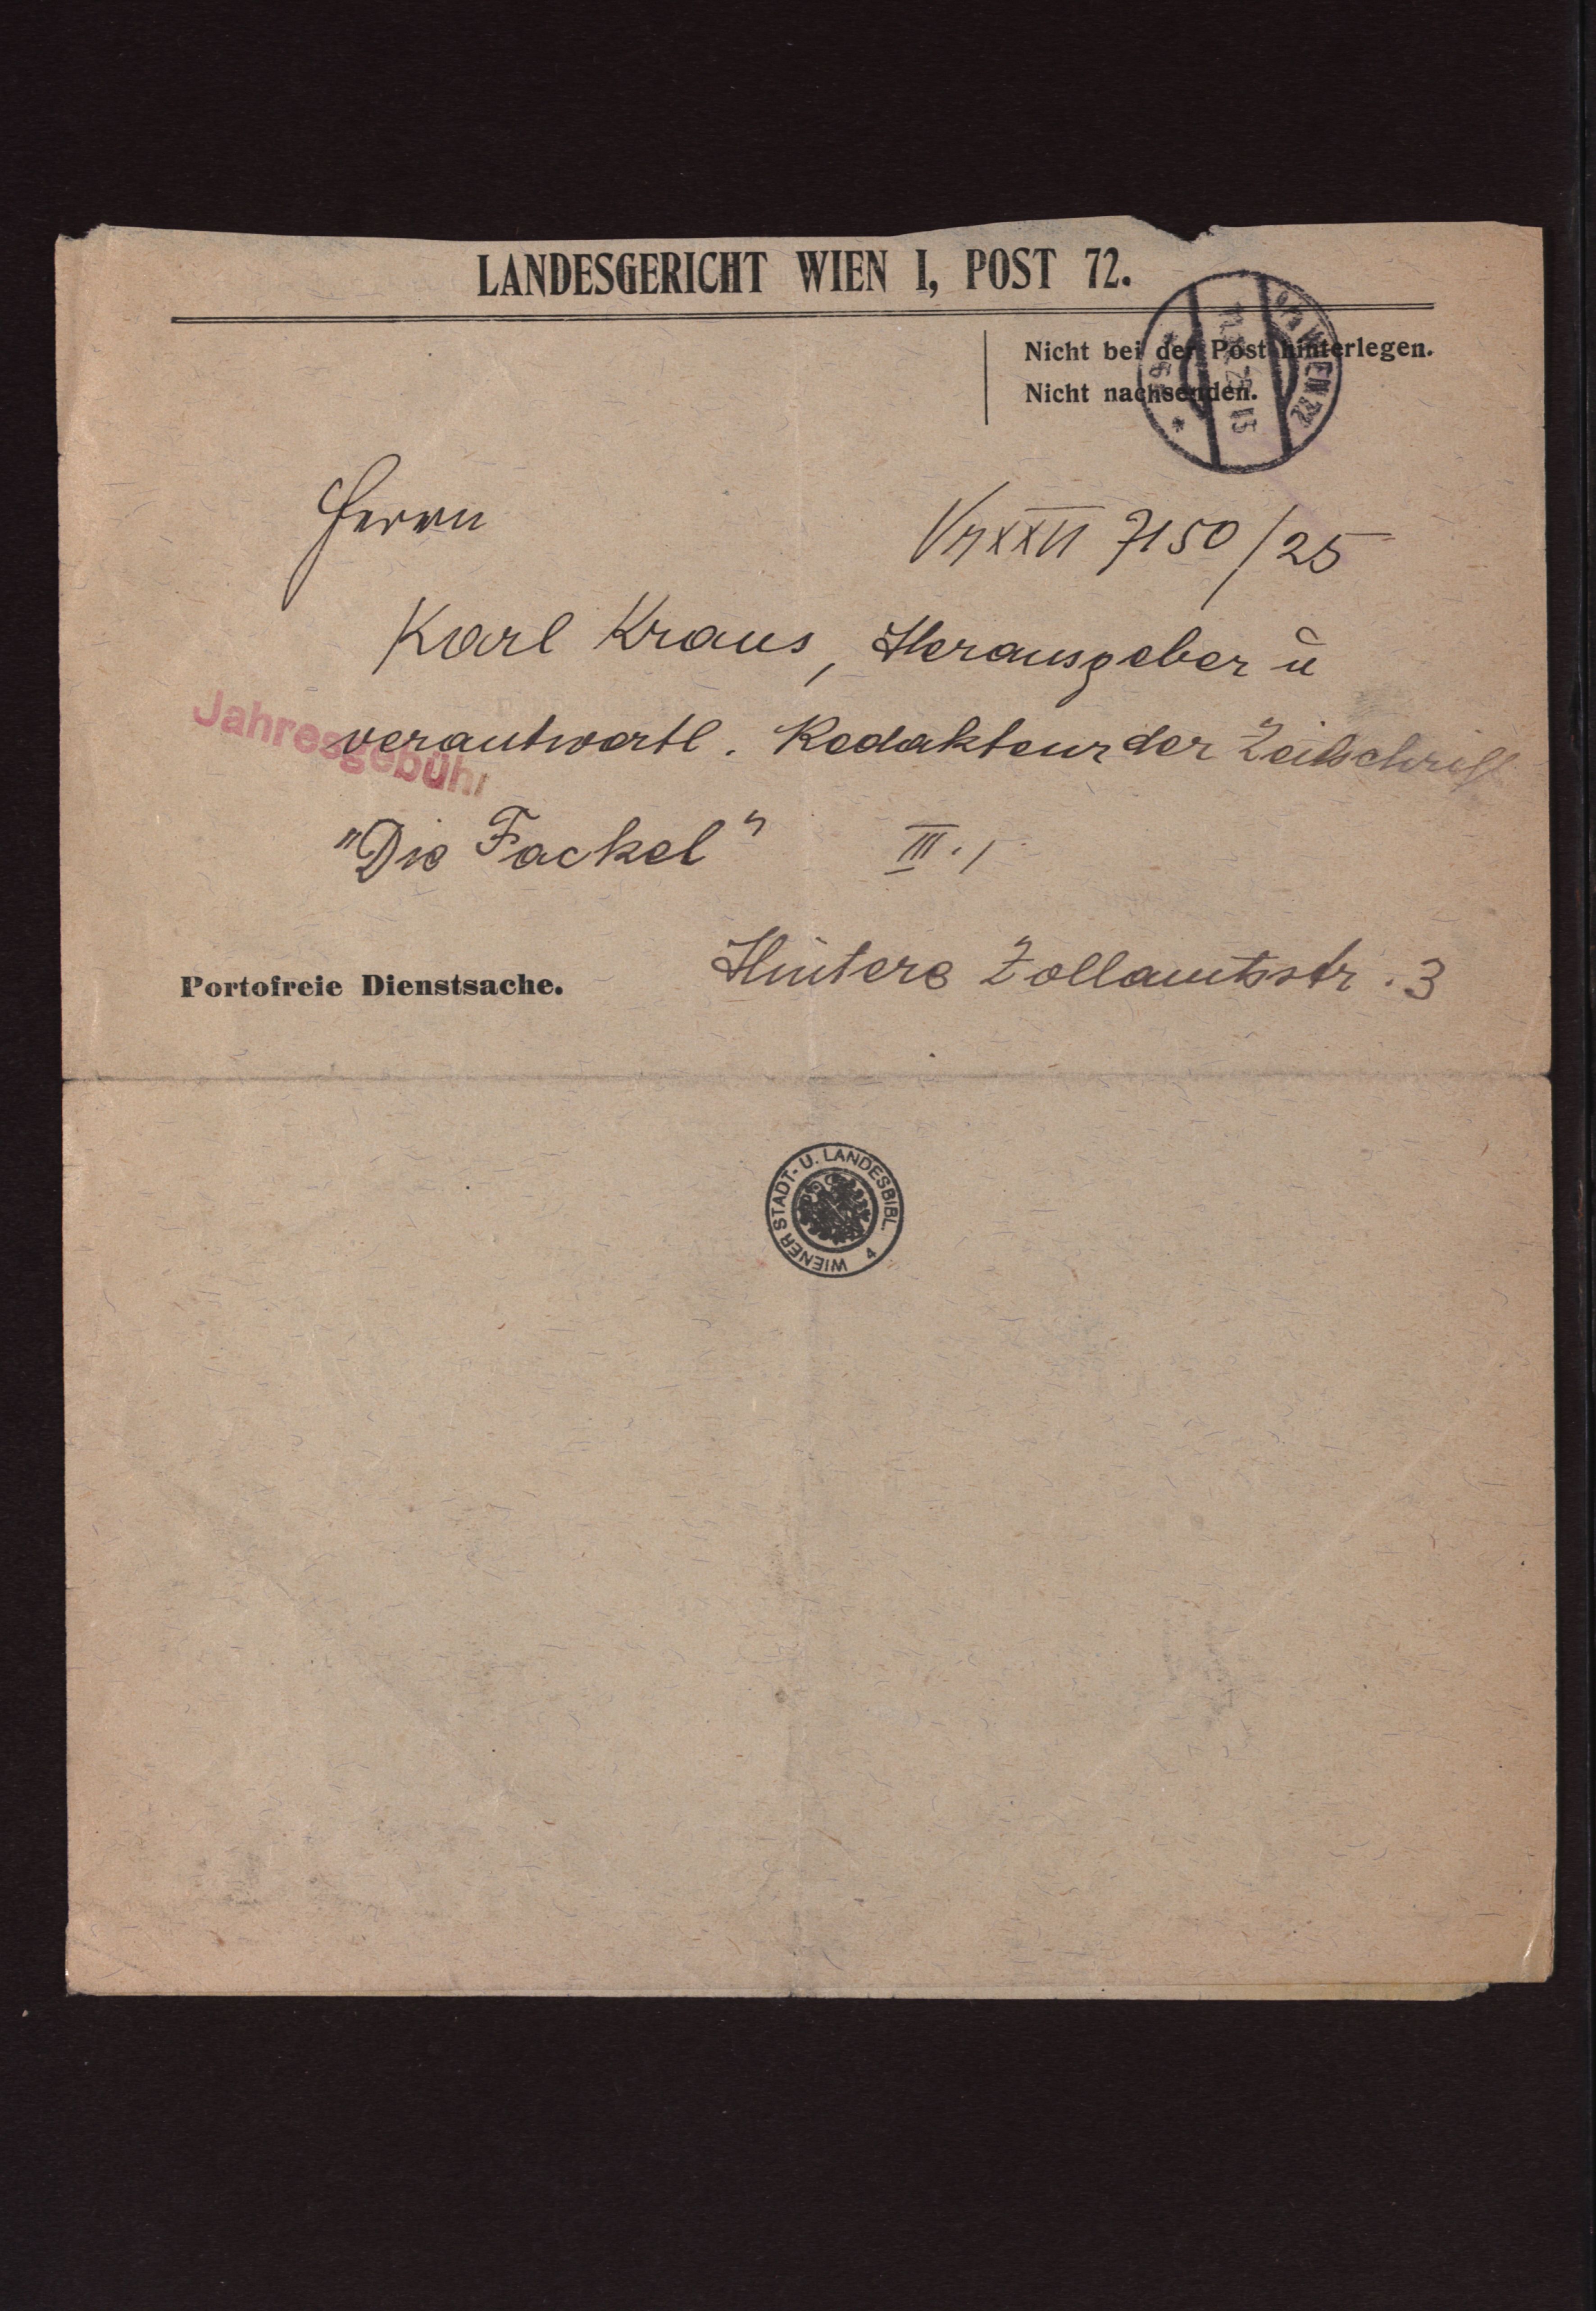 LANDESGERICHT WIEN I, POST 72.
Nicht bei der Post hinterlegen.
Nicht nachsenden.
WIEN
Herrn
7150/25
Karl Kraus, Herausgeber ū
Jahresgebühr
verantwortl. Redakteur der Zeitschrift
"Die Fackel" III. 1
Hintere Zollamtsstr. 3
Portofreie Dienstsache.
WIENER STADT- U. LANDESBIBL. 4